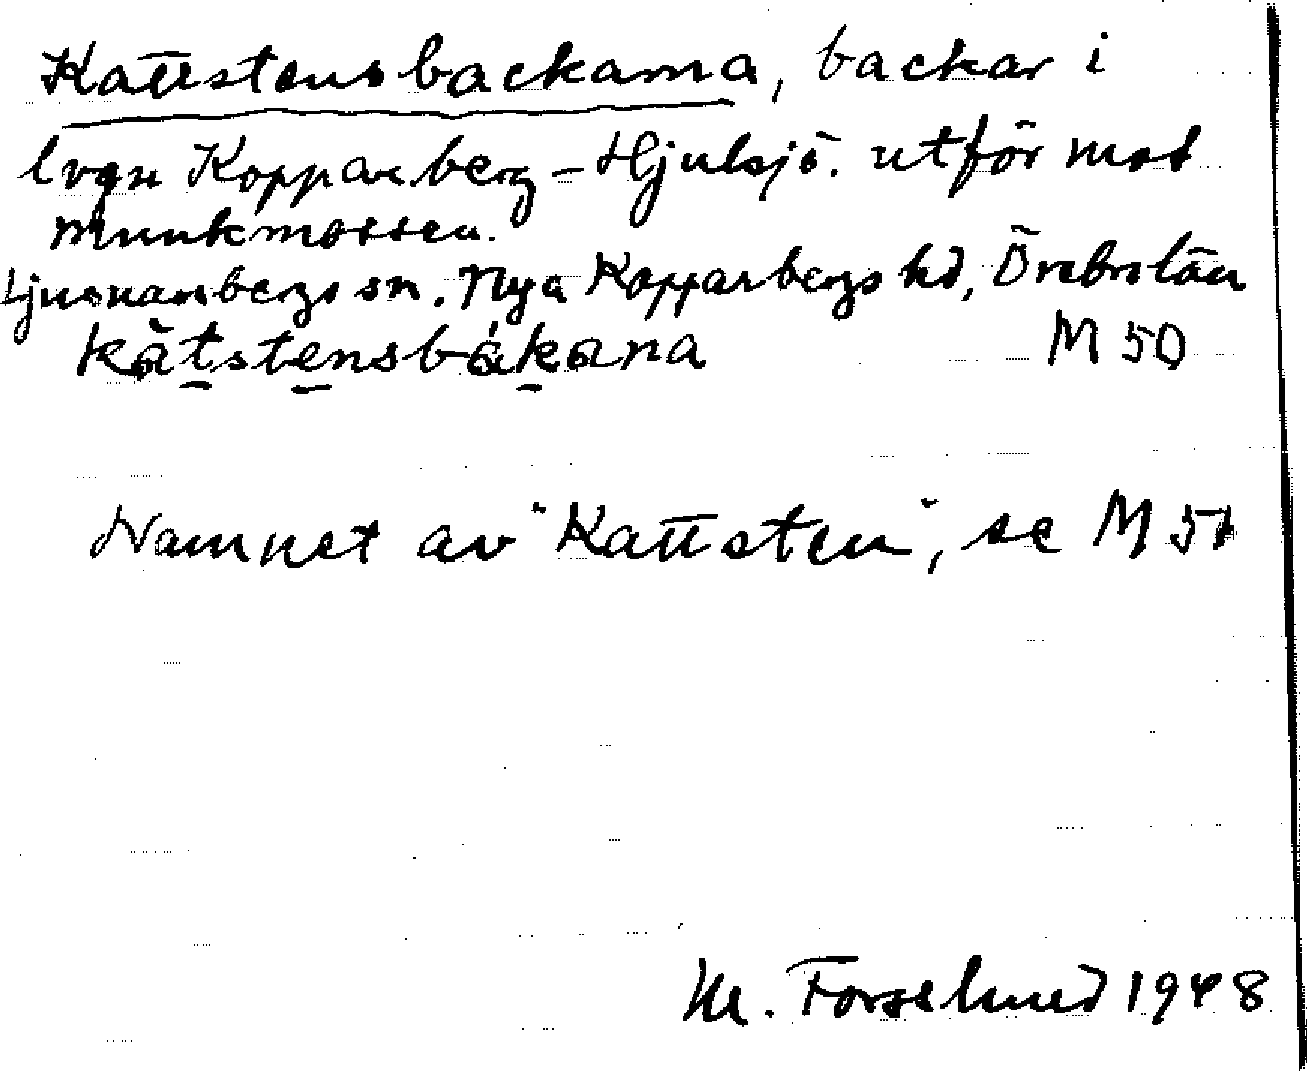 Kattstensbackarna, backar i
lvgn Kopparberg - Hjulsjö. utför mot
Munkmossen.
Ljusnarsbergs sn. Nya Kopparbergs hd, Örebro län
kàtstensbákana M 50
Namnet av "Kattsten", se M 51
M. Forselund 1948